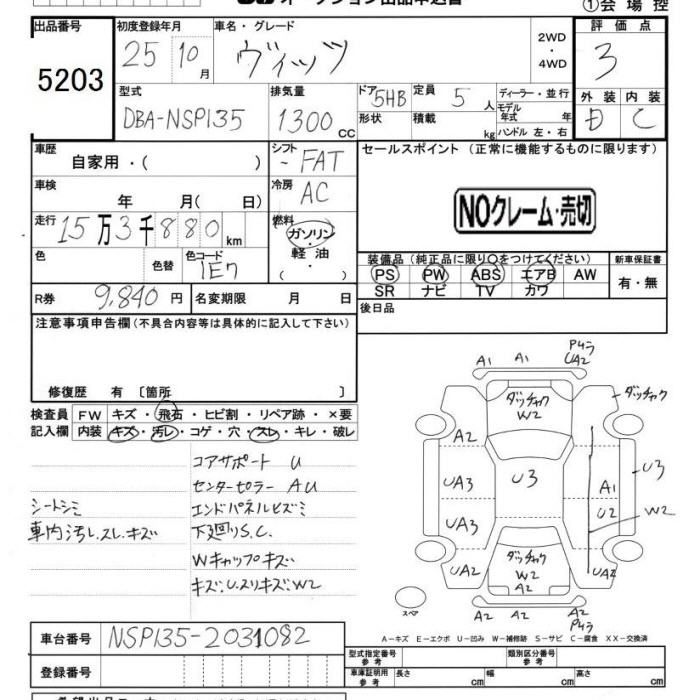 オークション出品申込書
①会場控
出品番号 5203
初度登録年月 25 10月
車名・グレード ヴィッツ
2WD・4WD
評価点 3
型式 DBA-NSP135
排気量 1300 CC
ドア形状 5HB
定員 5人
積載 kg
ディーラー・並行
モデル年式 年
ハンドル 左・右
外装 D
内装 C
車歴 自家用・( )
シフト - FAT
セールスポイント (正常に機能するものに限ります)
車検 年 月( 日)
冷房 AC
NOクレーム・売切
走行 15万3千880 km
燃料 ガソリン・軽油・( )
色 色替 色コード 1E7
装備品 (純正品に限り○をつけてください)
新車保証書
PS PW ABS エアB AW
SR ナビ TV カワ
有・無
R券 9,840 円
名変期限 月 日
後日品
注意事項申告欄 (不具合内容等は具体的に記入して下さい)
修復歴 有 〔箇所 〕
検査員記入欄
FW キズ・飛石・ヒビ割・リペア跡・×要
内装 キズ・汚レ・コゲ・穴・スレ・キレ・破レ
コアサポート U
センターピラー AU
シートシミ
エンドパネルヒズミ
車内汚レ.スレ.キズ
下廻りS.C.
Wキャップキズ
キズ:U.スリキズ:W2
A1 A1 P4ラ UA2
ダッチャク W2
ダッチャク
A2
UA3 U3 A1 U3
UA3 U2 W2
UA2 ダッチャク W2 A2 UA2
スペア
A2 A2 A2 P4ラ
A-キズ E-エクボ U-凹み W-補修跡 S-サビ C-腐食 XX-交換済
車台番号 NSP135-2031082
型式指定番号 参考
類別区分番号 参考
登録番号
車庫証明用 参考 長さ cm 幅 cm 高さ cm